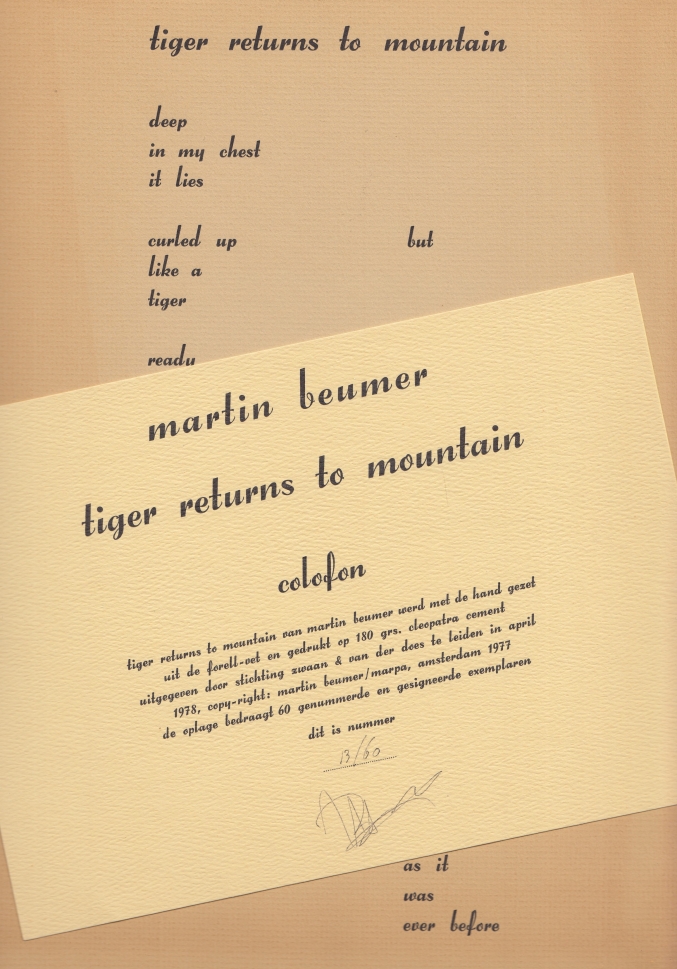 tiger returns to mountain
deep
in my chest
it lies
curled up
like a
tiger
ready
but
martin beumer
tiger returns to mountain
colofon
tiger returns to mountain van martin beumer werd met de hand gezet
uit de forell-vet en gedrukt op 180 grs. cleopatra cement
uitgegeven door stichting zwaan & van der does te leiden in april
1978, copy-right: martin beumer/marpa, amsterdam 1977
de oplage bedraagt 60 genummerde en gesigneerde exemplaren
dit is nummer
13/60
as it
was
ever before